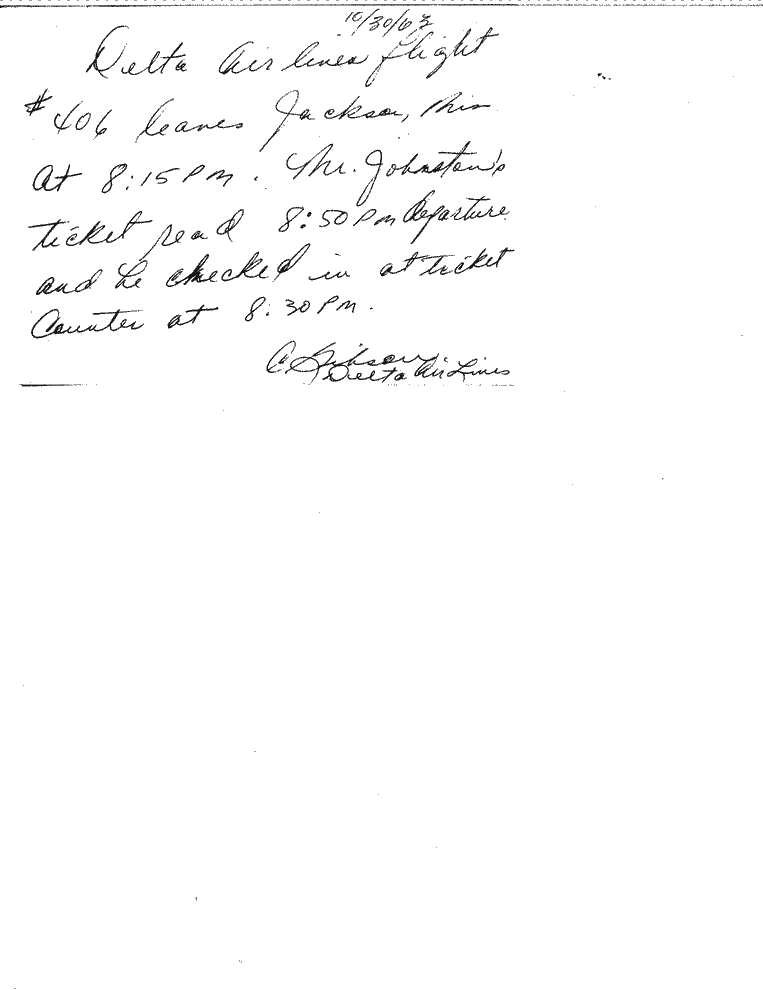 10/30/63
Delta Air lines flight
#406 leaves Jackson, Miss
at 8:15 PM. Mr. Johnston's
ticket read 8:50 PM departure
and he checked in at ticket
Counter at 8:30 PM.
C Gibson
Delta Air Lines